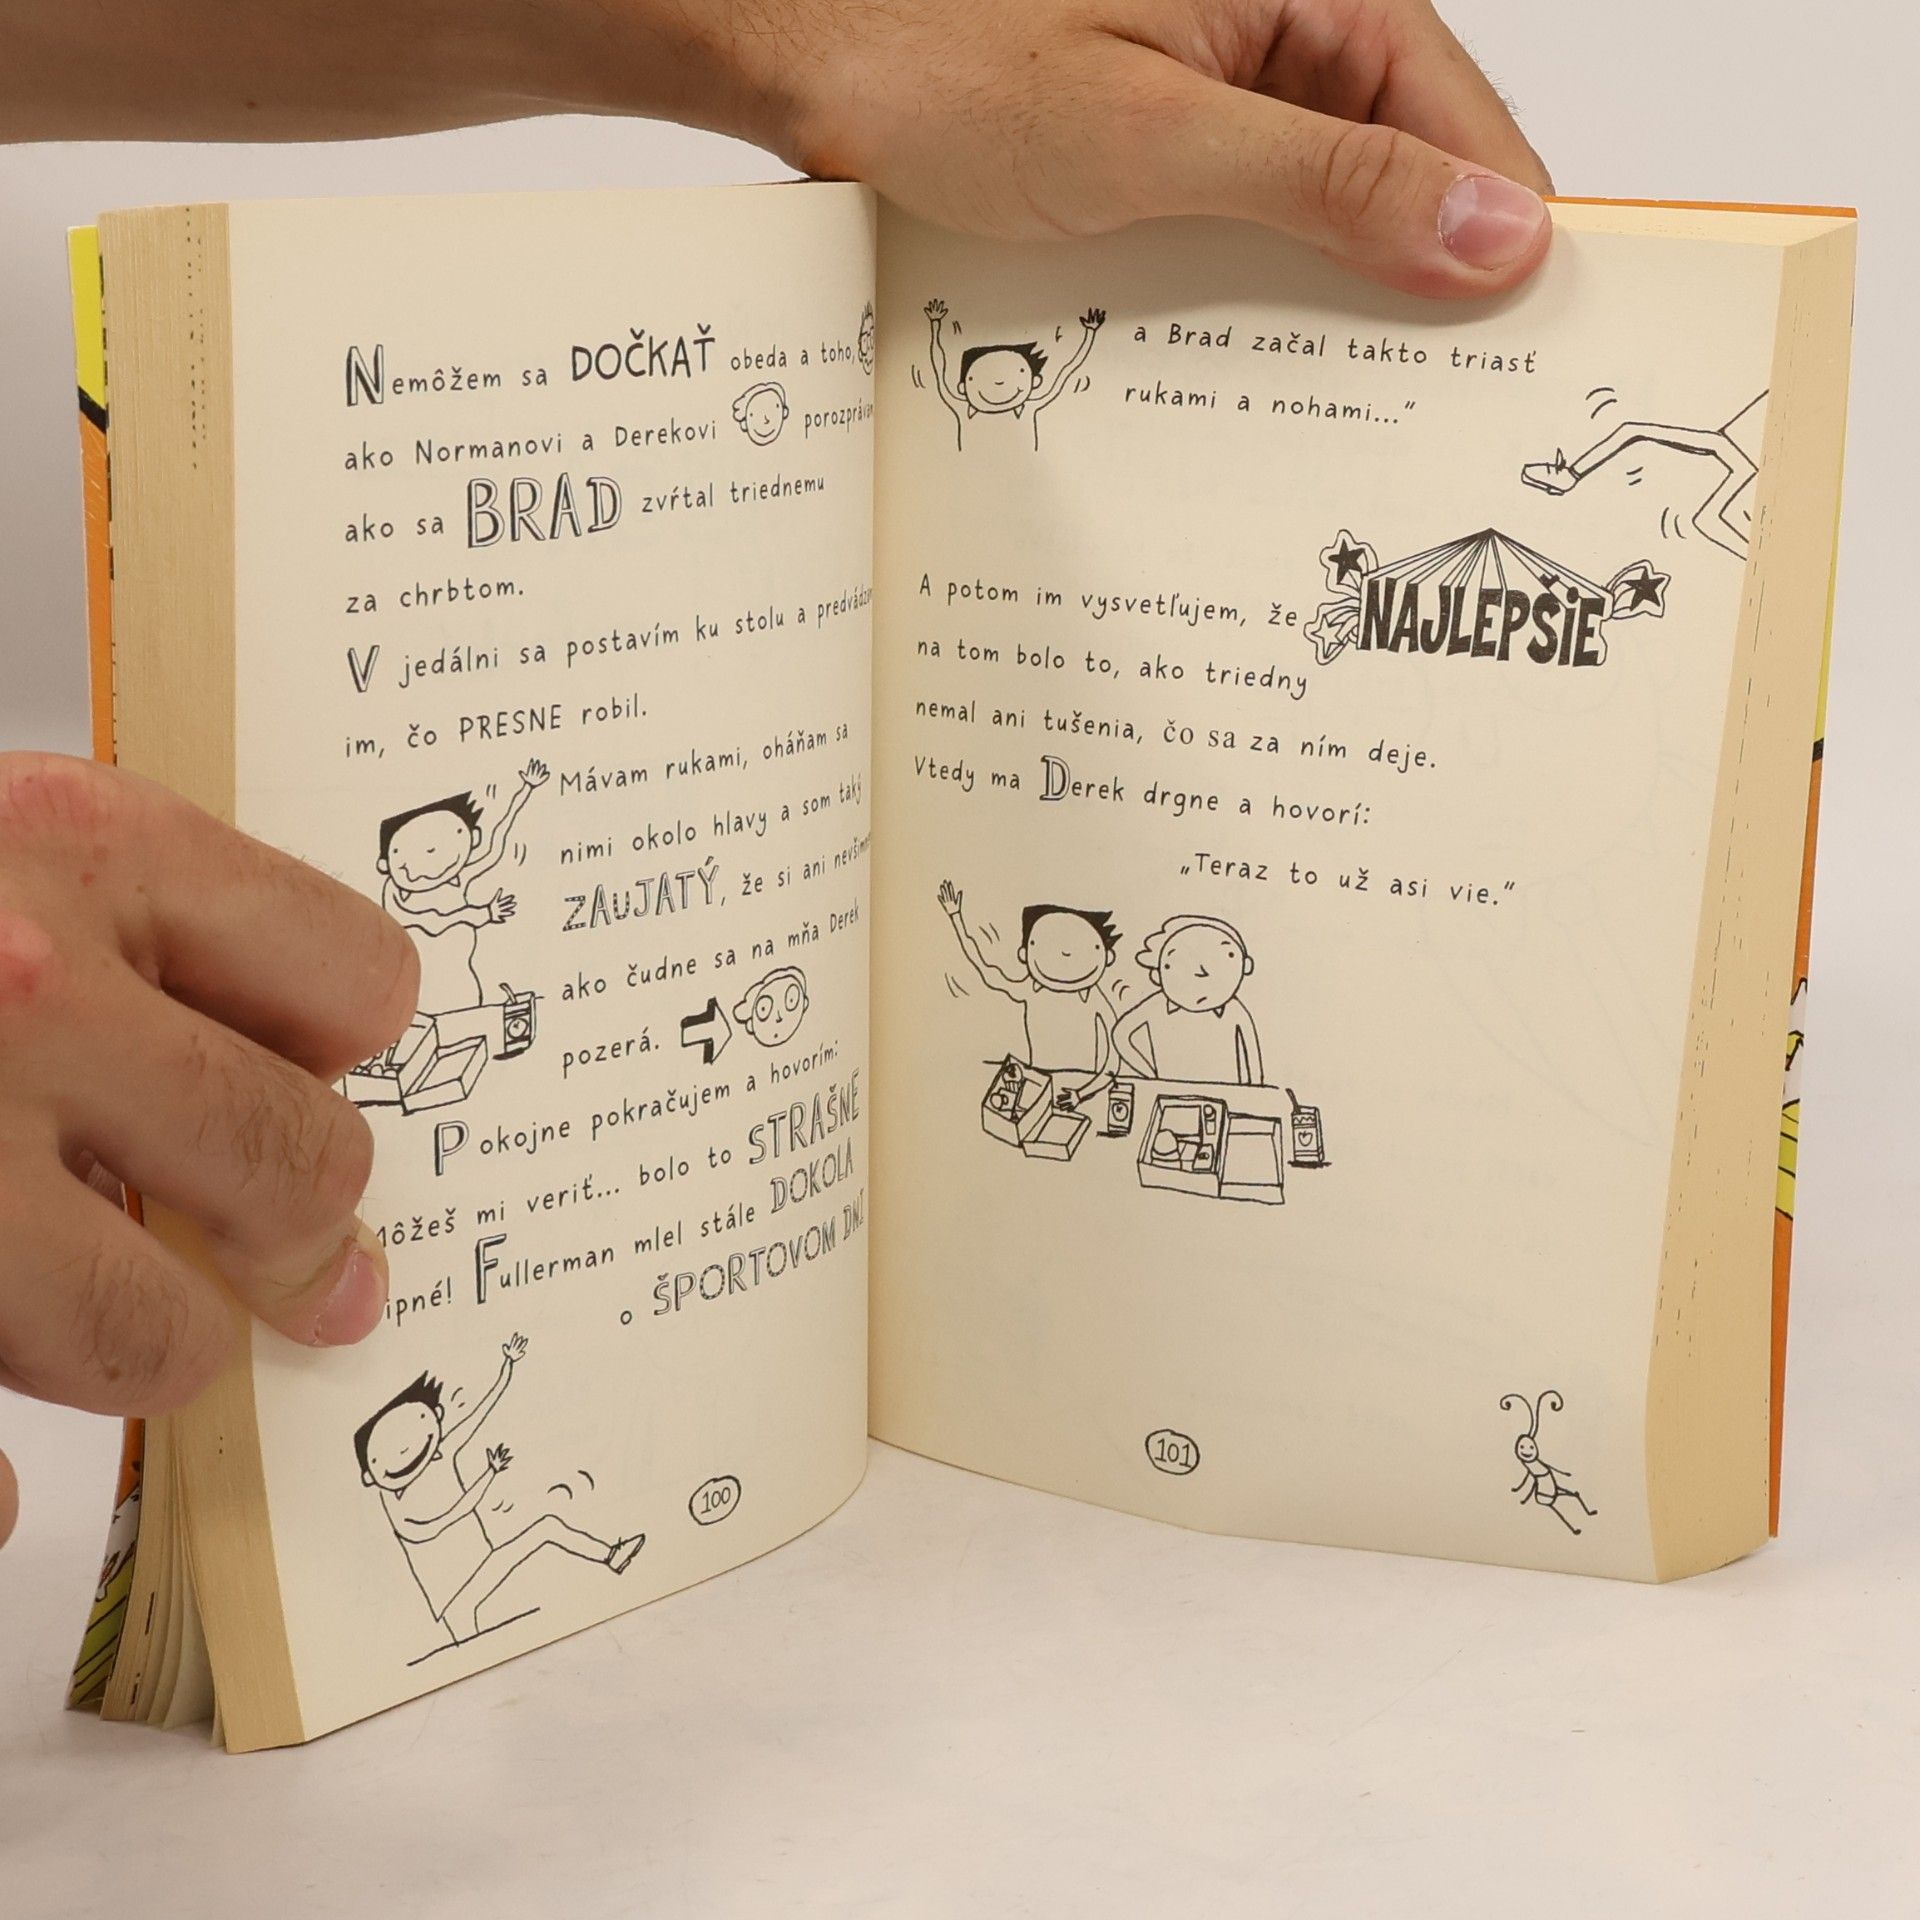 Nemôžem sa DOČKAŤ obeda a toho,
ako Normanovi a Derekovi
ako sa BRAD zvŕtal triednemu
za chrbtom.
V jedálni sa postavím ku stolu a
im, čo PRESNE robil.
Mávam rukami, oháňam sa
nimi okolo hlavy a som taký
ZAUJATÝ, že si ani
ako čudne sa na mňa Derek
pozerá.
Pokojne pokračujem a hovorím:
mi veriť... bolo to STRAŠNE
Fullerman mlel stále DOKOLA
o ŠPORTOVOM DNI
100
a Brad začal takto triasť
rukami a nohami...“
A potom im vysvetľujem, že NAJLEPŠIE
na tom bolo to, ako triedny
nemal ani tušenia, čo sa za ním deje.
Vtedy ma Derek drgne a hovorí:
„Teraz to už asi vie.“
101